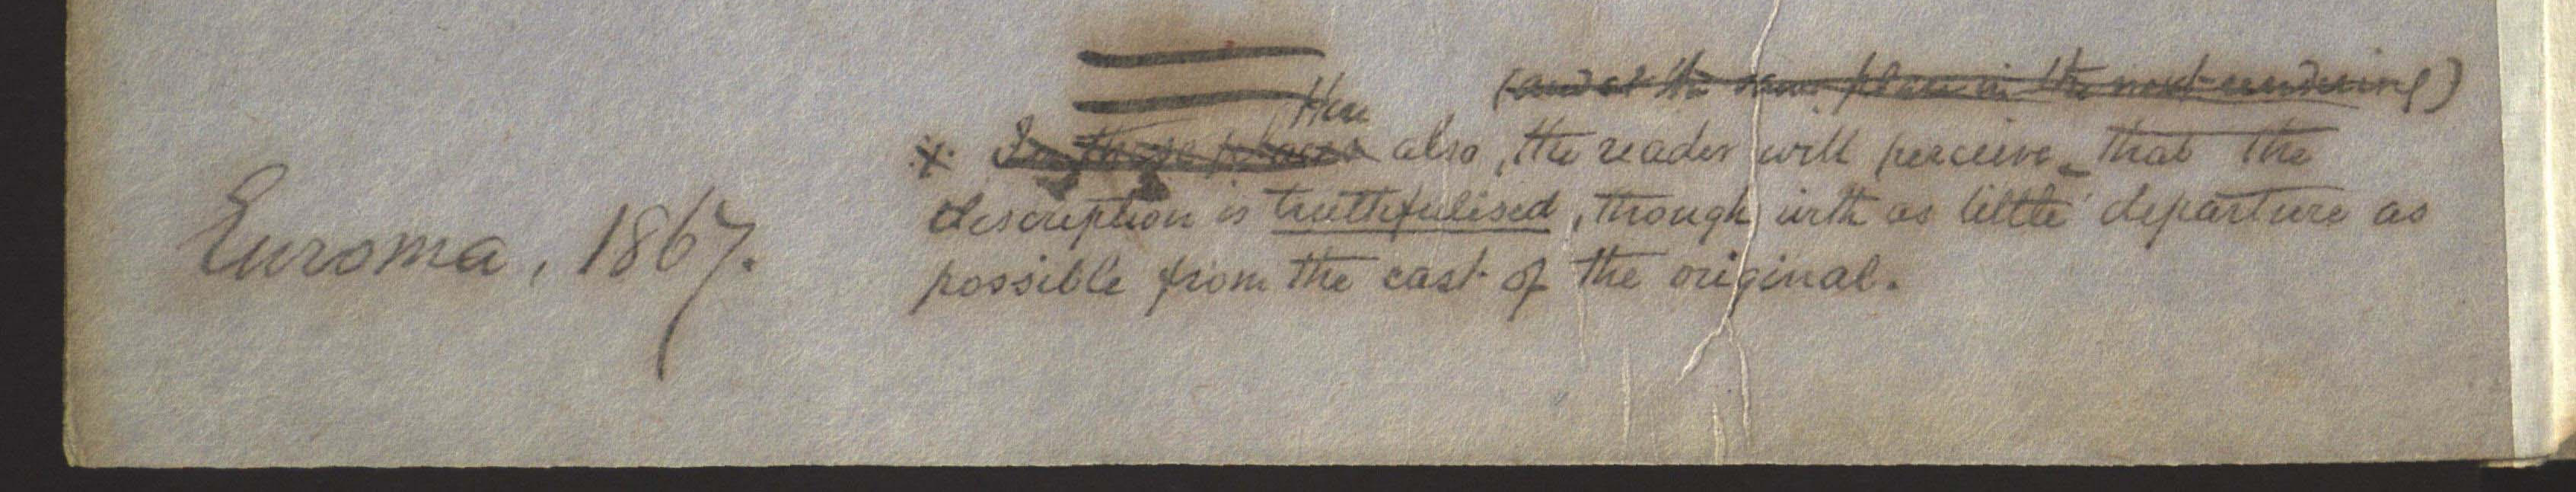 (and at the same place in the next rendering)
Here
* In these places also, the reader will perceive that the
description is truthfulised, though with as little departure as
possible from the cast of the original.
Euroma, 1867.